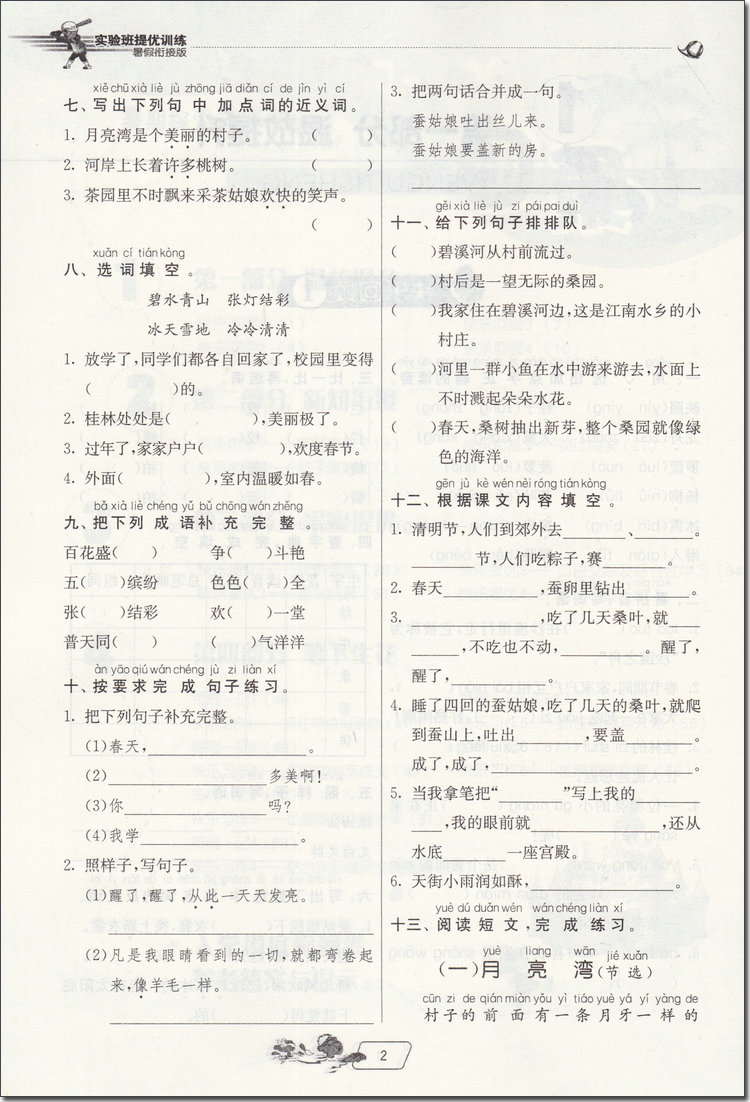 实验班提优训练
暑假衔接版
xiě chū xià liè jù zhōng jiā diǎn cí de jìn yì cí
七、写出下列句中加点词的近义词。
1. 月亮湾是个美丽的村子。 ( )
2. 河岸上长着许多桃树。 ( )
3. 茶园里不时飘来采茶姑娘欢快的笑声。
( )
xuǎn cí tián kòng
八、选词填空。
碧水青山 张灯结彩
冰天雪地 冷冷清清
1. 放学了,同学们都各自回家了,校园里变得
( )的。
2. 桂林处处是( ),美丽极了。
3. 过年了,家家户户( ),欢度春节。
4. 外面( ),室内温暖如春。
bǎ xià liè chéng yǔ bǔ chōng wán zhěng
九、把下列成语补充完整。
百花盛( ) 争( )斗艳
五( )缤纷 色色( )全
张( )结彩 欢( )一堂
普天同( ) ( )气洋洋
àn yāo qiú wán chéng jù zi liàn xí
十、按要求完成句子练习。
1. 把下列句子补充完整。
(1)春天,________。
(2)________多美啊!
(3)你________吗?
(4)我学________。
2. 照样子,写句子。
(1)醒了,醒了,从此一天天发亮。
(2)凡是我眼睛看到的一切,就都弯卷起
来,像羊毛一样。
3. 把两句话合并成一句。
蚕姑娘吐出丝儿来。
蚕姑娘要盖新的房。
gěi xià liè jù zi pái pai duì
十一、给下列句子排排队。
( )碧溪河从村前流过。
( )村后是一望无际的桑园。
( )我家住在碧溪河边,这是江南水乡的小
村庄。
( )河里一群小鱼在水中游来游去,水面上
不时溅起朵朵水花。
( )春天,桑树抽出新芽,整个桑园就像绿
色的海洋。
gēn jù kè wén nèi róng tián kòng
十二、根据课文内容填空。
1. 清明节,人们到郊外去________、________。
________节,人们吃粽子,赛________。
2. 春天________,蚕卵里钻出________。
3. ________,吃了几天桑叶,就
________,不吃也不动,________。醒了,
醒了,________。
4. 睡了四回的蚕姑娘,吃了几天的桑叶,就爬
到蚕山上,吐出________,要盖________。
成了,成了,________。
5. 当我拿笔把“________”写上我的
________,我的眼前就________,还从
水底________一座宫殿。
6. 天街小雨润如酥,________。
yuè dú duǎn wén wán chéng liàn xí
十三、阅读短文,完成练习。
yuè liang wān jié xuǎn
(一)月亮湾(节选)
cūn zi de qián miàn yǒu yì tiáo yuè yá yí yàng de
村子的前面有一条月牙一样的
2